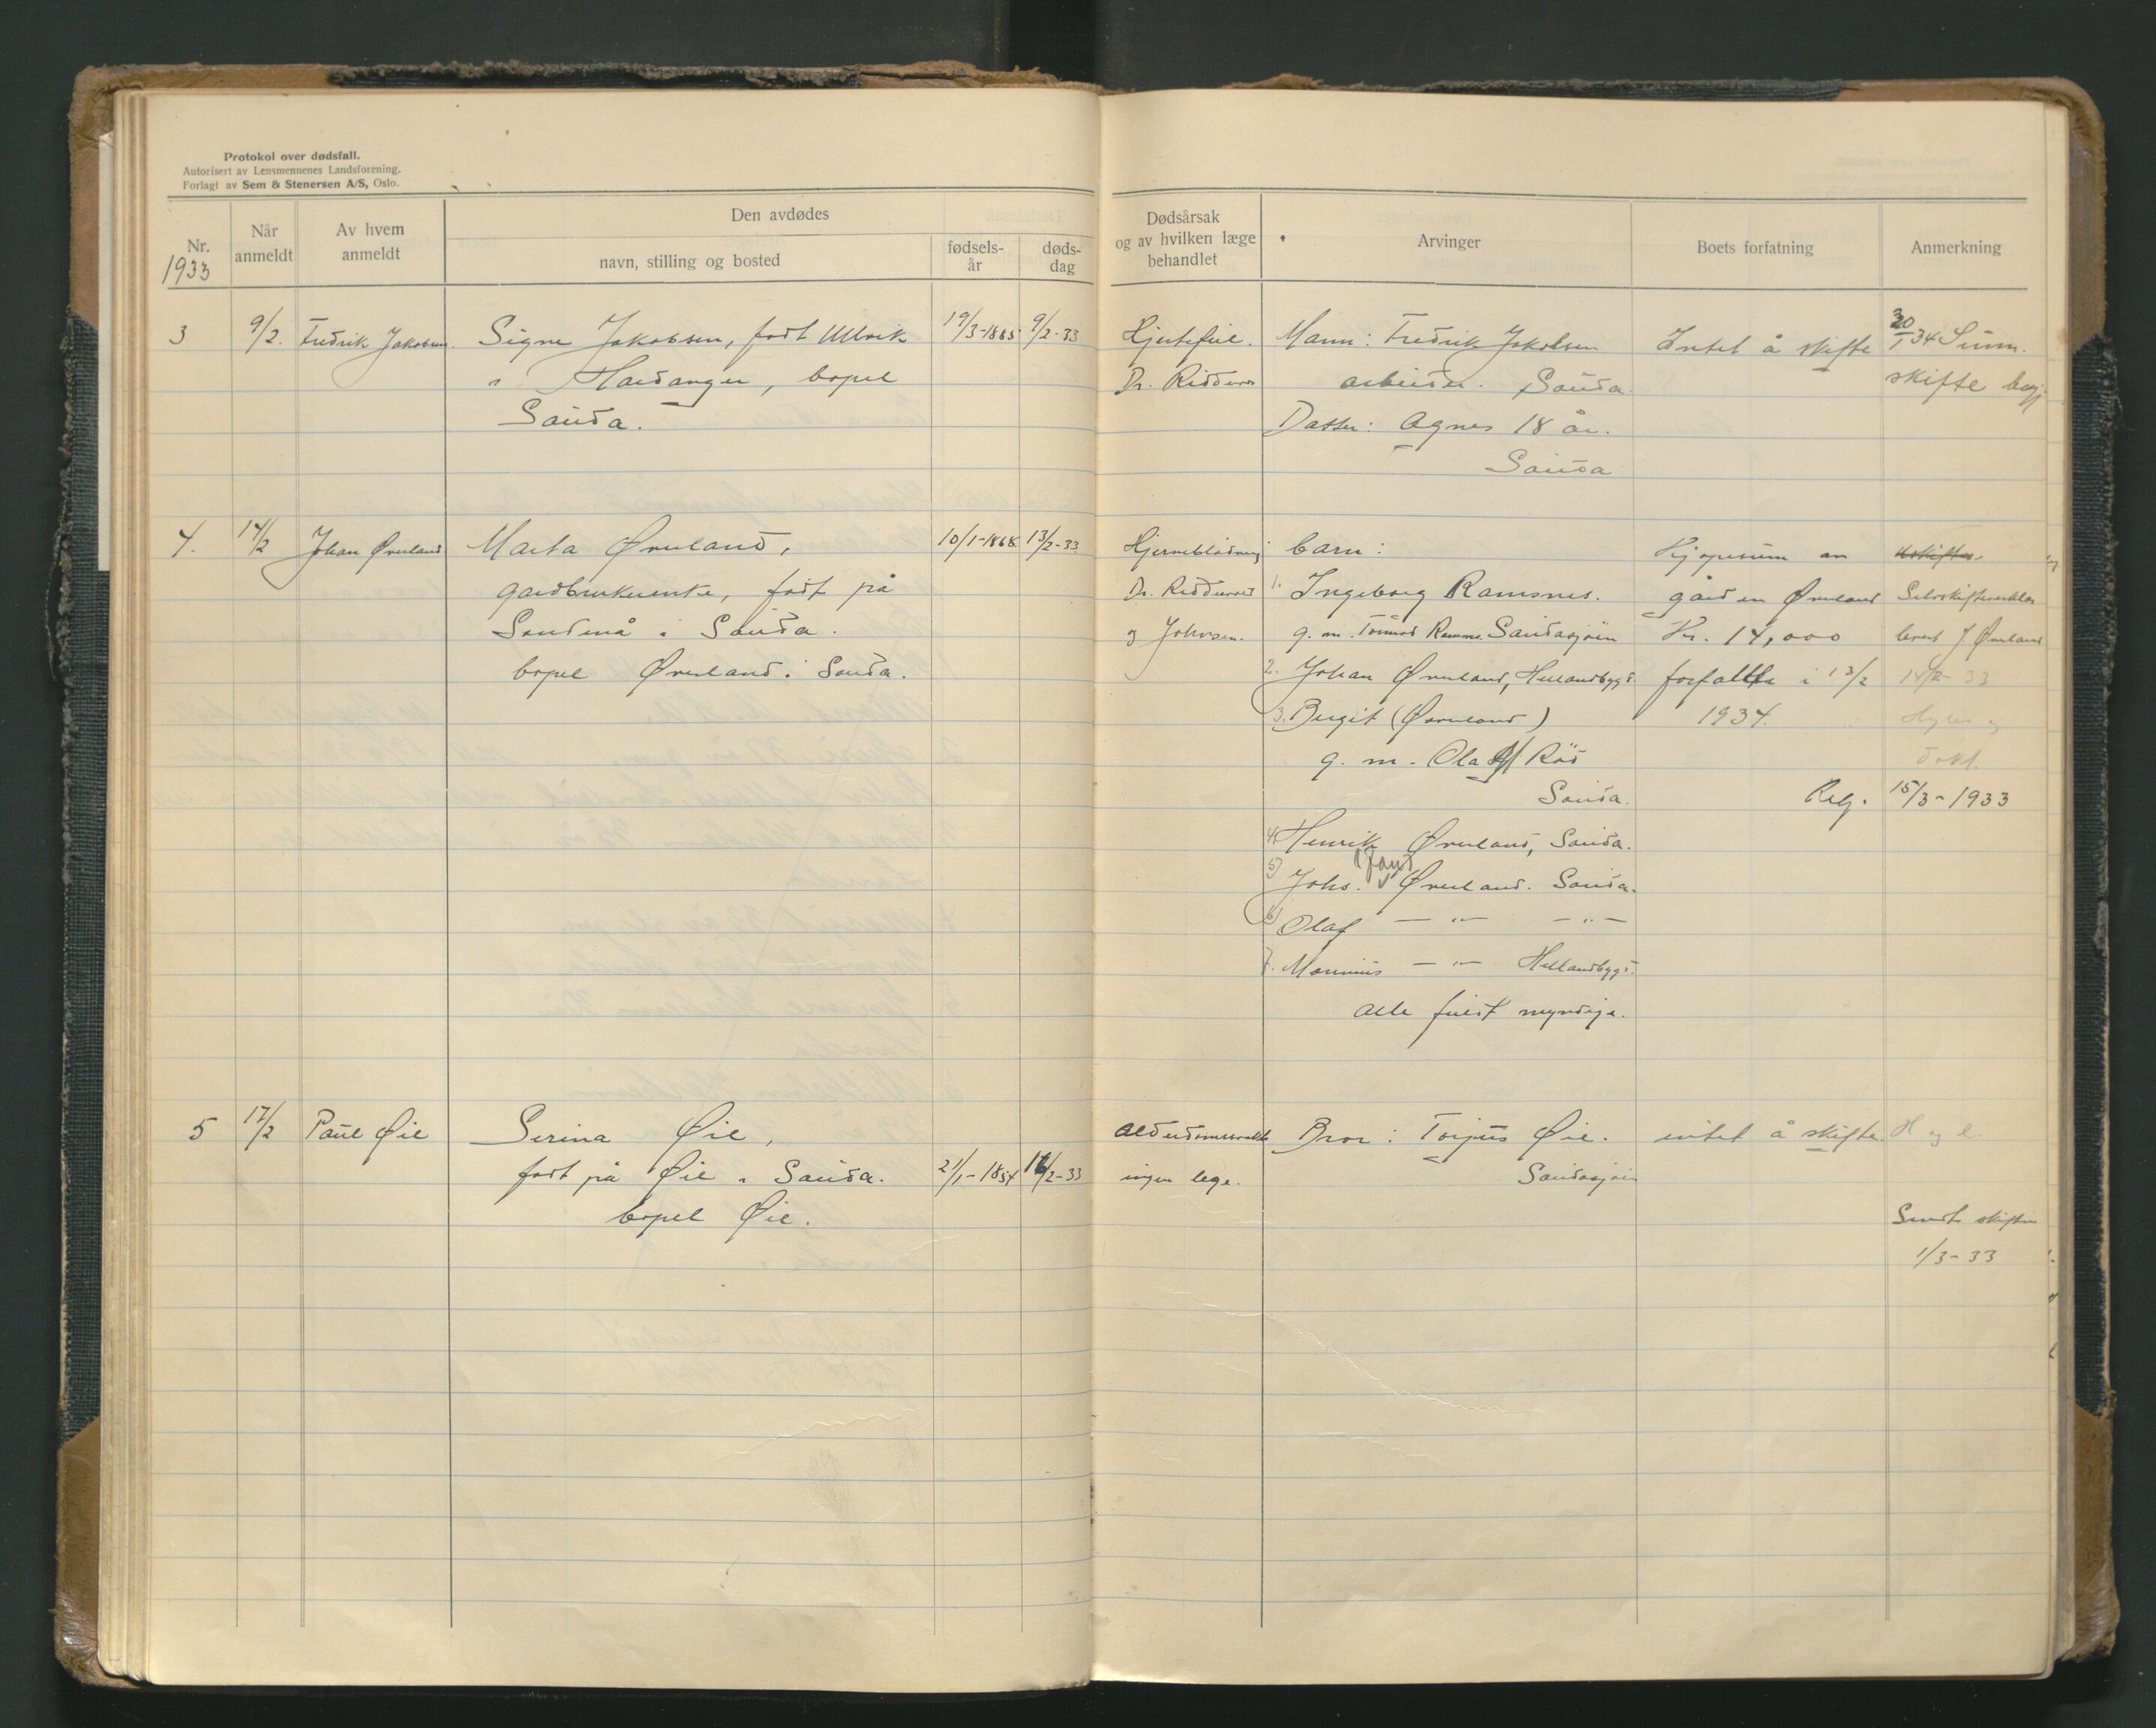 Protokol over dødsfall.
Autorisert av Lensmennenes Landsforening.
Forlagt av Sem & Stenersen A/S, Oslo.
Nr.
1933
Når
anmeldt
Av hvem
anmeldt
Den avdødes
navn, stilling og bosted
fødsels-
år
døds-
dag
Dødsårsak
og av hvilken læge
behandlet
Arvinger
Boets forfatning
Anmerkning
3
9/2.
Fredrik Jakobsen
Signe Jakobsen, født Ullvik
i Hardanger, bopel
Sauda.
19/3-1885
9/2-33
Hjertefeil.
Dr. Riddervos
Mann: Fredrik Jakobsen
arbeider. Sauda.
Datter: Agnes 18 år.
Sauda
Intet å skifte
34 Summ.
skifte begj
4.
14/2
Johan Øverland
Marta Øverland,
gardbrukerenke, født på
Sandenå i Sauda.
bopel Øverland i Sauda.
10/1-1868
13/2-33
Hjerneblødning
Dr. Riddervos
og Johnsen.
barn:
1. Ingeborg Ramsnes.
g. m. Tormod Ramsnes. Saudasjøen
2. Johan Øverland, Hellandbygd.
3. Bergit (Øverland)
g. m. Olaf Rød
Sauda.
4) Henrik Øverland, Sauda.
5) Johs. Øverland. Sauda.
6) Olaf — " — — " —
7. Mannius — " — Hellandbygd.
alle fuldt myndige.
Kjøpesum av
gården Øverland
Kr. 14,000
forfalt i 13/2
1934.
Reg.
Uskiftet.
Selvskifteerklær
levert J Øverland
14/2-33
15/3-1933
5
17/2
Paul Øie
Serina Øie,
født på Øie i Sauda.
bopel Øie.
21/1-1854
16/2-33
Alderdomssvakhet
ingen lege.
Bror: Torjus Øie.
Saudasjøen
intet å skifte.
H og l.
Sendt skiftere
1/3-33